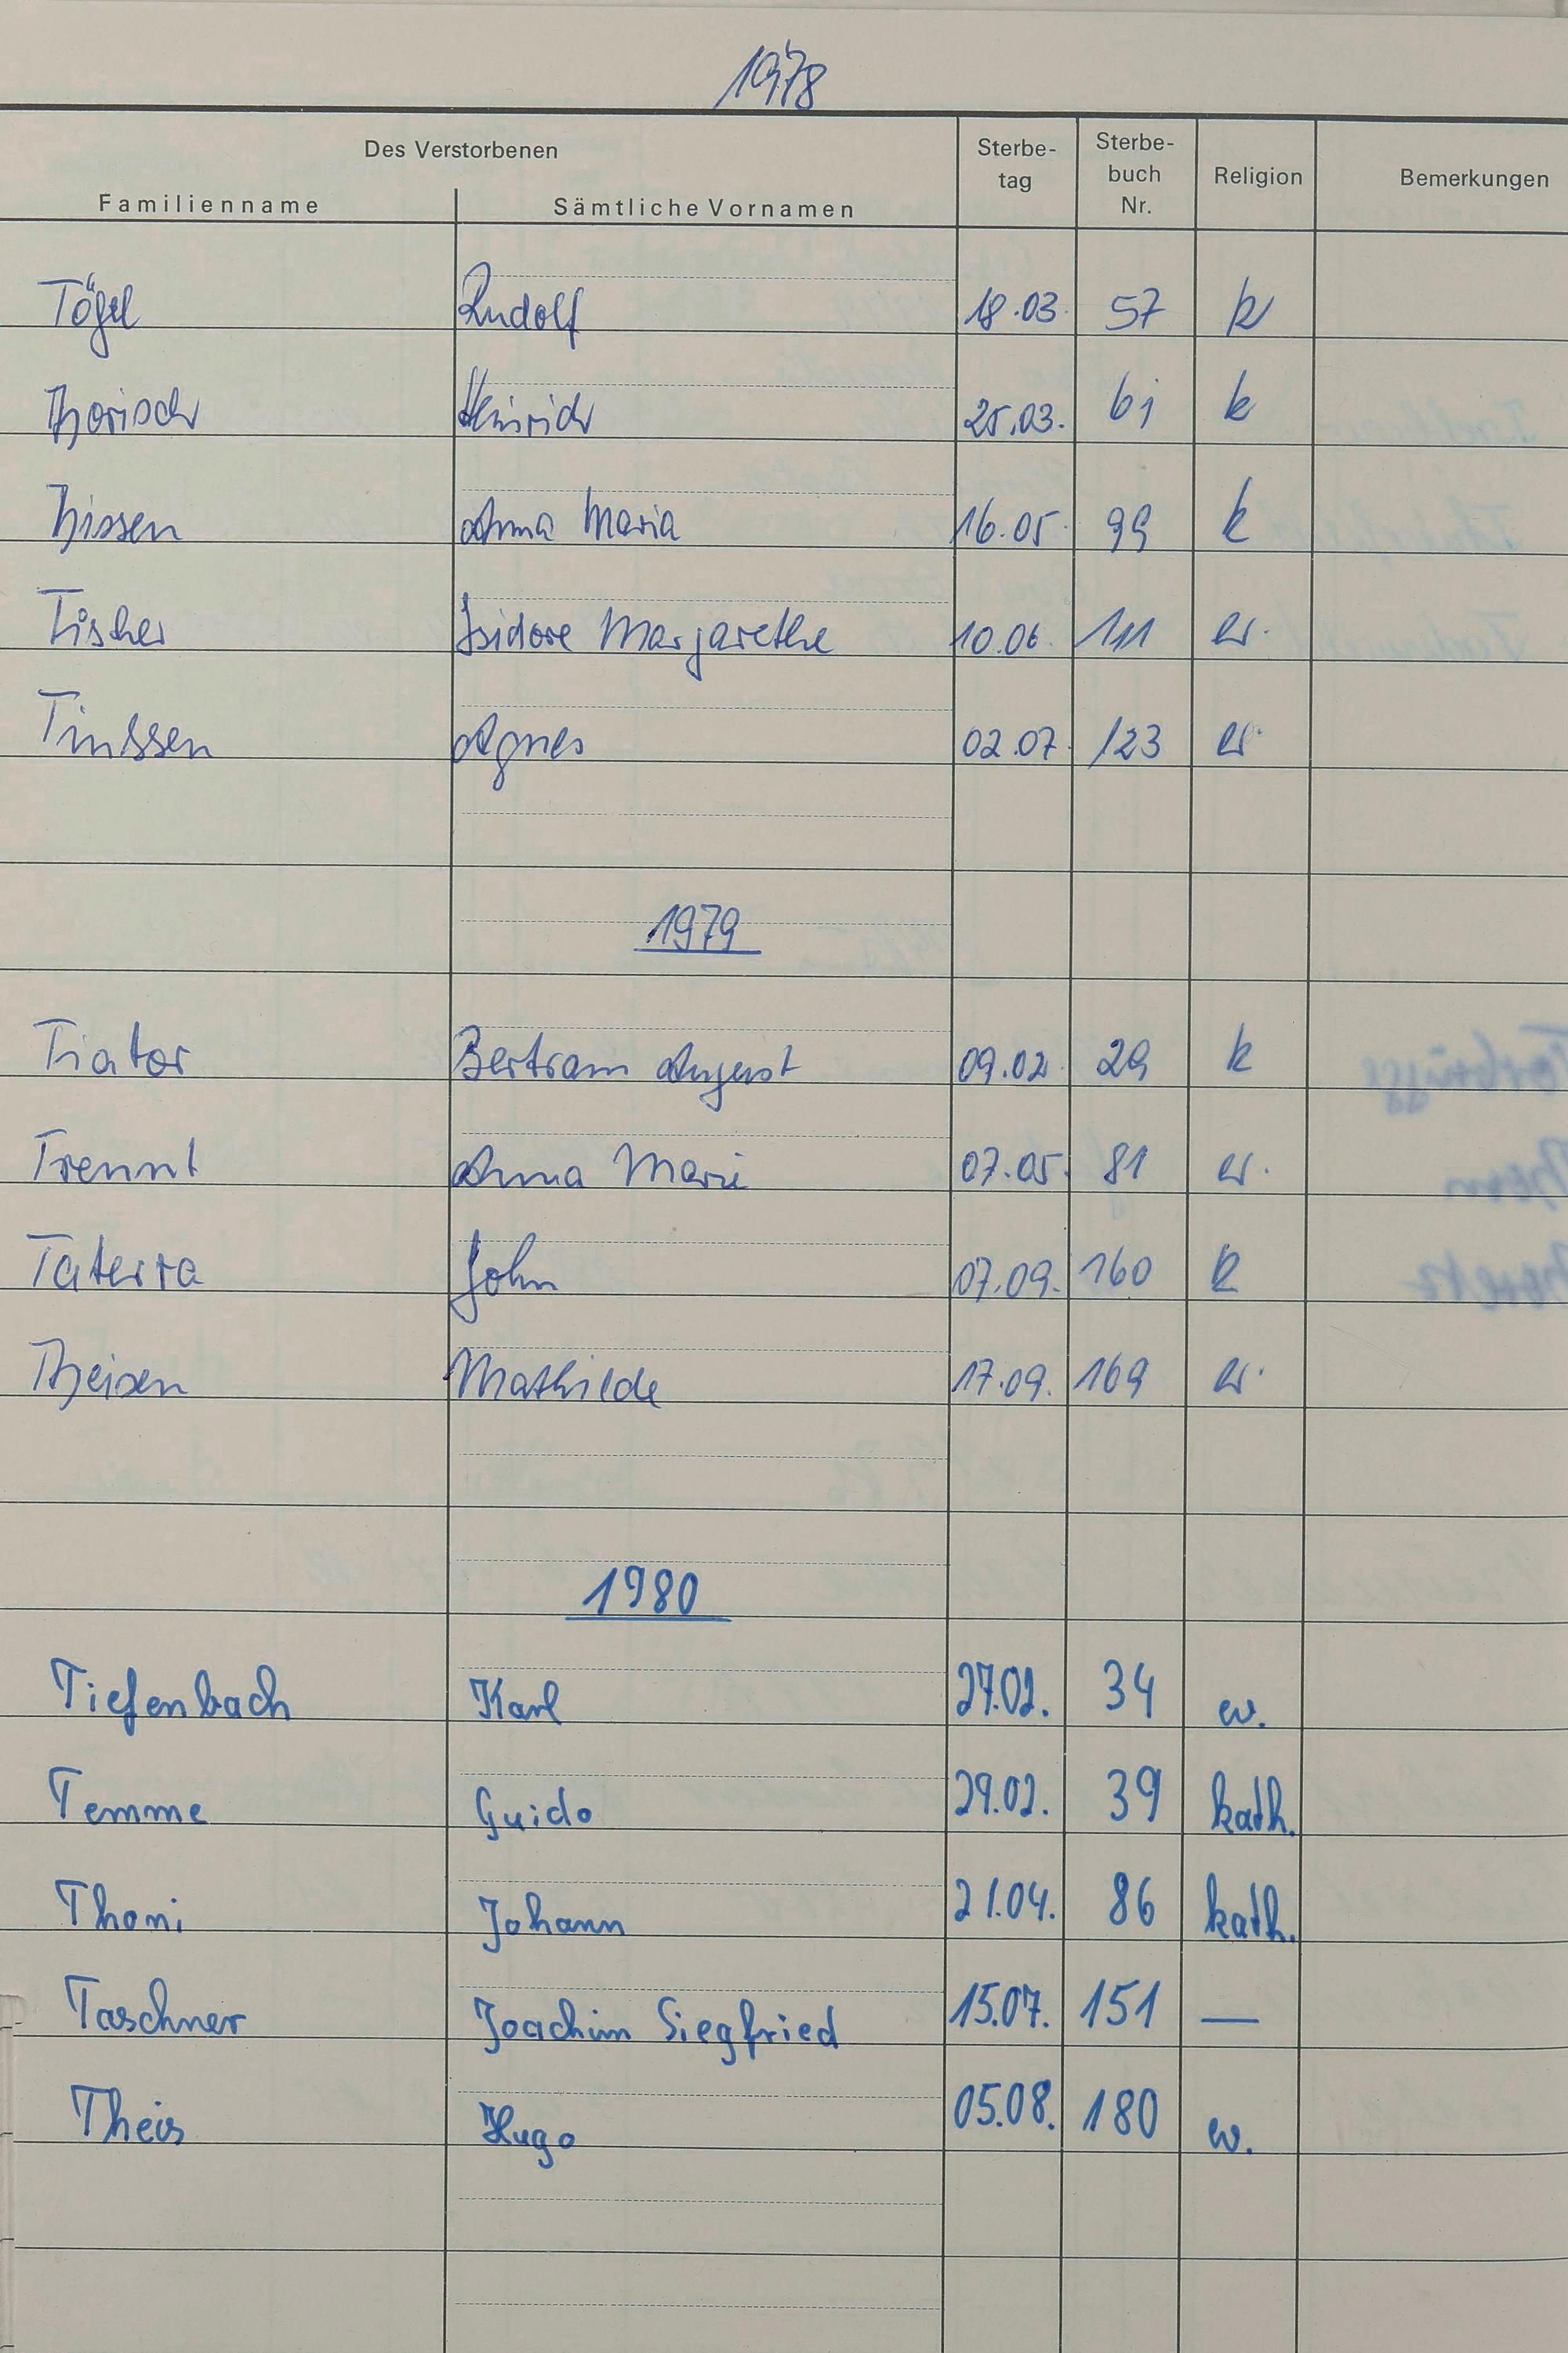 1978
Des Verstorbenen
Familienname Sämtliche Vornamen Sterbe-tag Sterbe-buch Nr. Religion Bemerkungen
Tögel Rudolf 18.03. 57 k
Thorisch Heinrich 25.03. 61 k
Thissen Anna Maria 16.05. 99 k
Tischer Isidore Margarethe 10.06. 111 ev.
Tinssen Agnes 02.07. 123 ev.
1979
Tiator Bertram August 09.02. 29 k
Trennt Anna Marie 07.05. 81 ev.
Taterra John 07.09. 160 k
Theisen Mathilde 17.09. 169 ev.
1980
Tiefenbach Karl 27.02. 34 ev.
Temme Guido 29.02. 39 kath.
Thoni Johann 21.04. 86 kath.
Taschner Joachim Siegfried 15.07. 151 —
Theis Hugo 05.08. 180 ev.